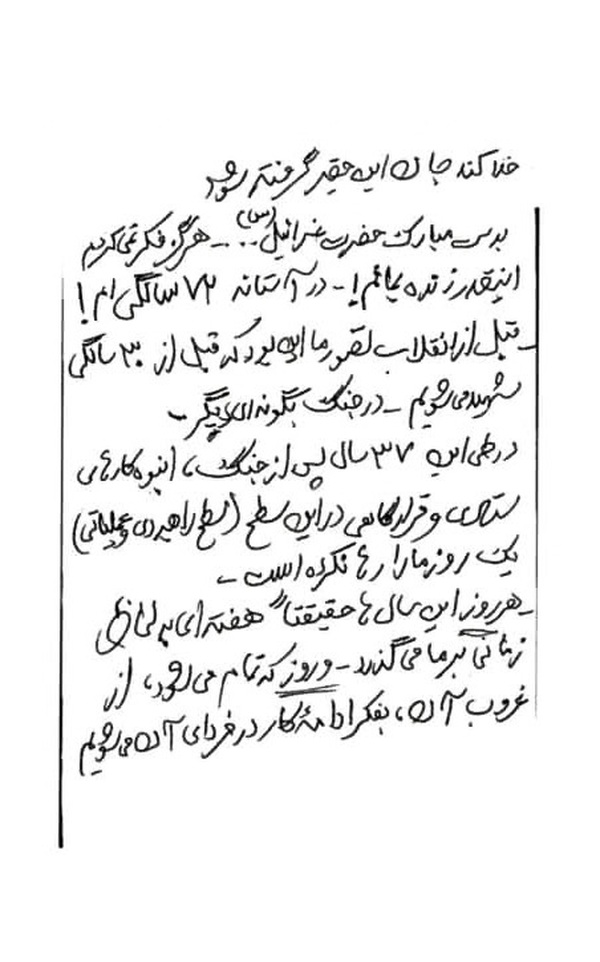 خدا کند جان این حقیر گرفته شود
بدست مبارک حضرت عزرائیل (س) .. - هرگز فکر نمی‌کردیم
اینقدر زنده بمانم! - در آستانه ۷۲ سالگی ام!
- قبل از انقلاب تصور ما این بود که قبل از ۳۰ سالگی
شهید می‌شویم - در جنگ بگونه‌ای دیگر -
در طی این ۳۷ سال پس از جنگ، انبوه کارهای
ستادی و قرارگاهی در این سطح (سطح راهبردی و عملیاتی)
یک روز ما را رها نکرده است -
- هر روز این سال ها حقیقتاً هفته‌ای به لحاظ
زمانی بر ما می گذرد - و روز که تمام می شود، از
غروب آن، بفکر ادامهٔ کار در فردای آن می شویم